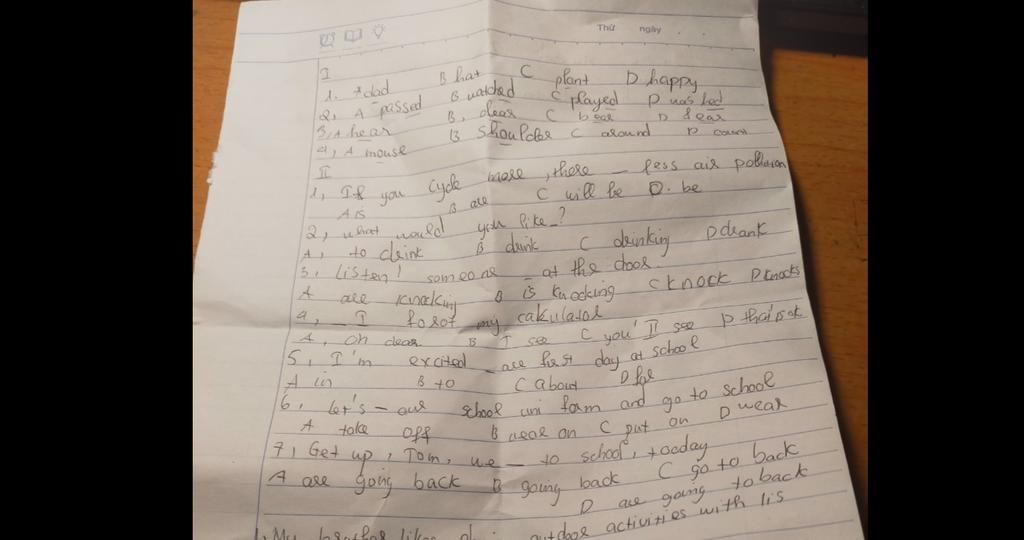 Thứ ngày
I
1. A dad B hat C plant D happy
2, A passed B watched C played D washed
3, A hear B, clear C bear D fear
4, A mouse B shoulder C around D count
II
1, If you cycle more, there _ less air pollution
A is B are C will be D. be
2, what would you like _?
A, to drink B drink C drinking D drank
3, listen! someone _ at the door
A are knocking B is knocking C knock D knocks
4, _ I forot my calculator
A, oh dear B I see C you'll see D
5, I'm excited _ our first day at school
A in B to C about D for
6, let's _ our school uni form and go to school
A take off B wear on C put on D wear
7, Get up, Tom, we _ to school, toaday
A are going back B going back C go to back
D are going to back
My brother likes outdoor activities with his